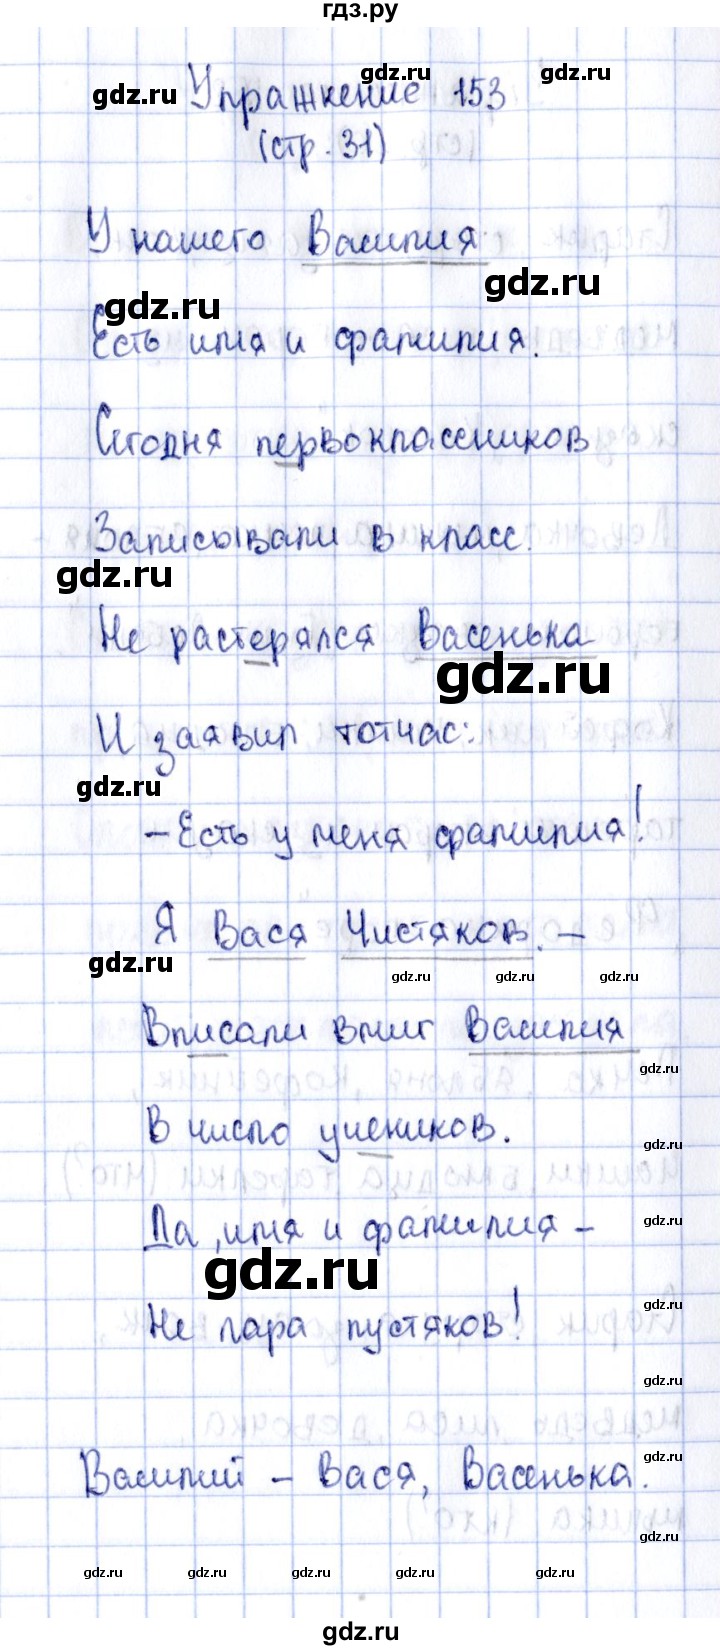 гдз.ру
gdz.ru gdz.ru gdz.ru
Упражнение 153
(стр. 31)
У нашего Василия
gdz.ru
gdz.ru
Есть имя и фамилия.
Сегодня первоклассников
Записывали в класс.
gdz.ru
Не растерялся Васенька
gdz.ru
И заявил тотчас:
gdz.ru
- Есть у меня фамилия!
Я Вася Чистяков. -
gdz.ru gdz.ru gdz.ru gdz.ru
Вписали вмиг Василия
gdz.ru
В число учеников.
gdz.ru
Да, имя и фамилия -
gdz.ru
gdz.ru
Не пара пустяков!
gdz.ru
gdz.ru
Василий - Вася, Васенька.
gdz.ru
gdz.ru
gdz.ru gdz.ru gdz.ru gdz.ru gdz.ru
gdz.ru